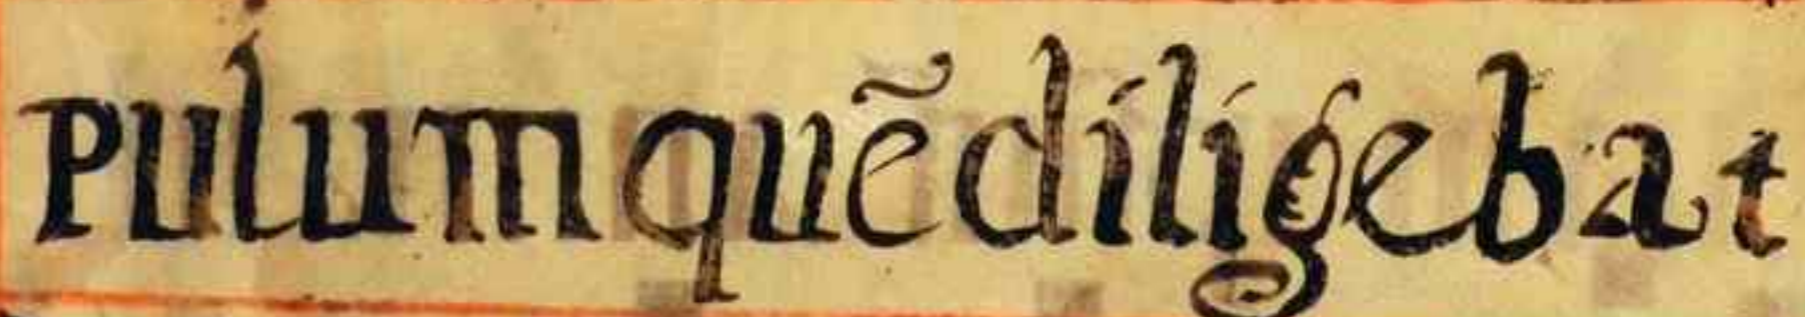 pulum quē diligebat